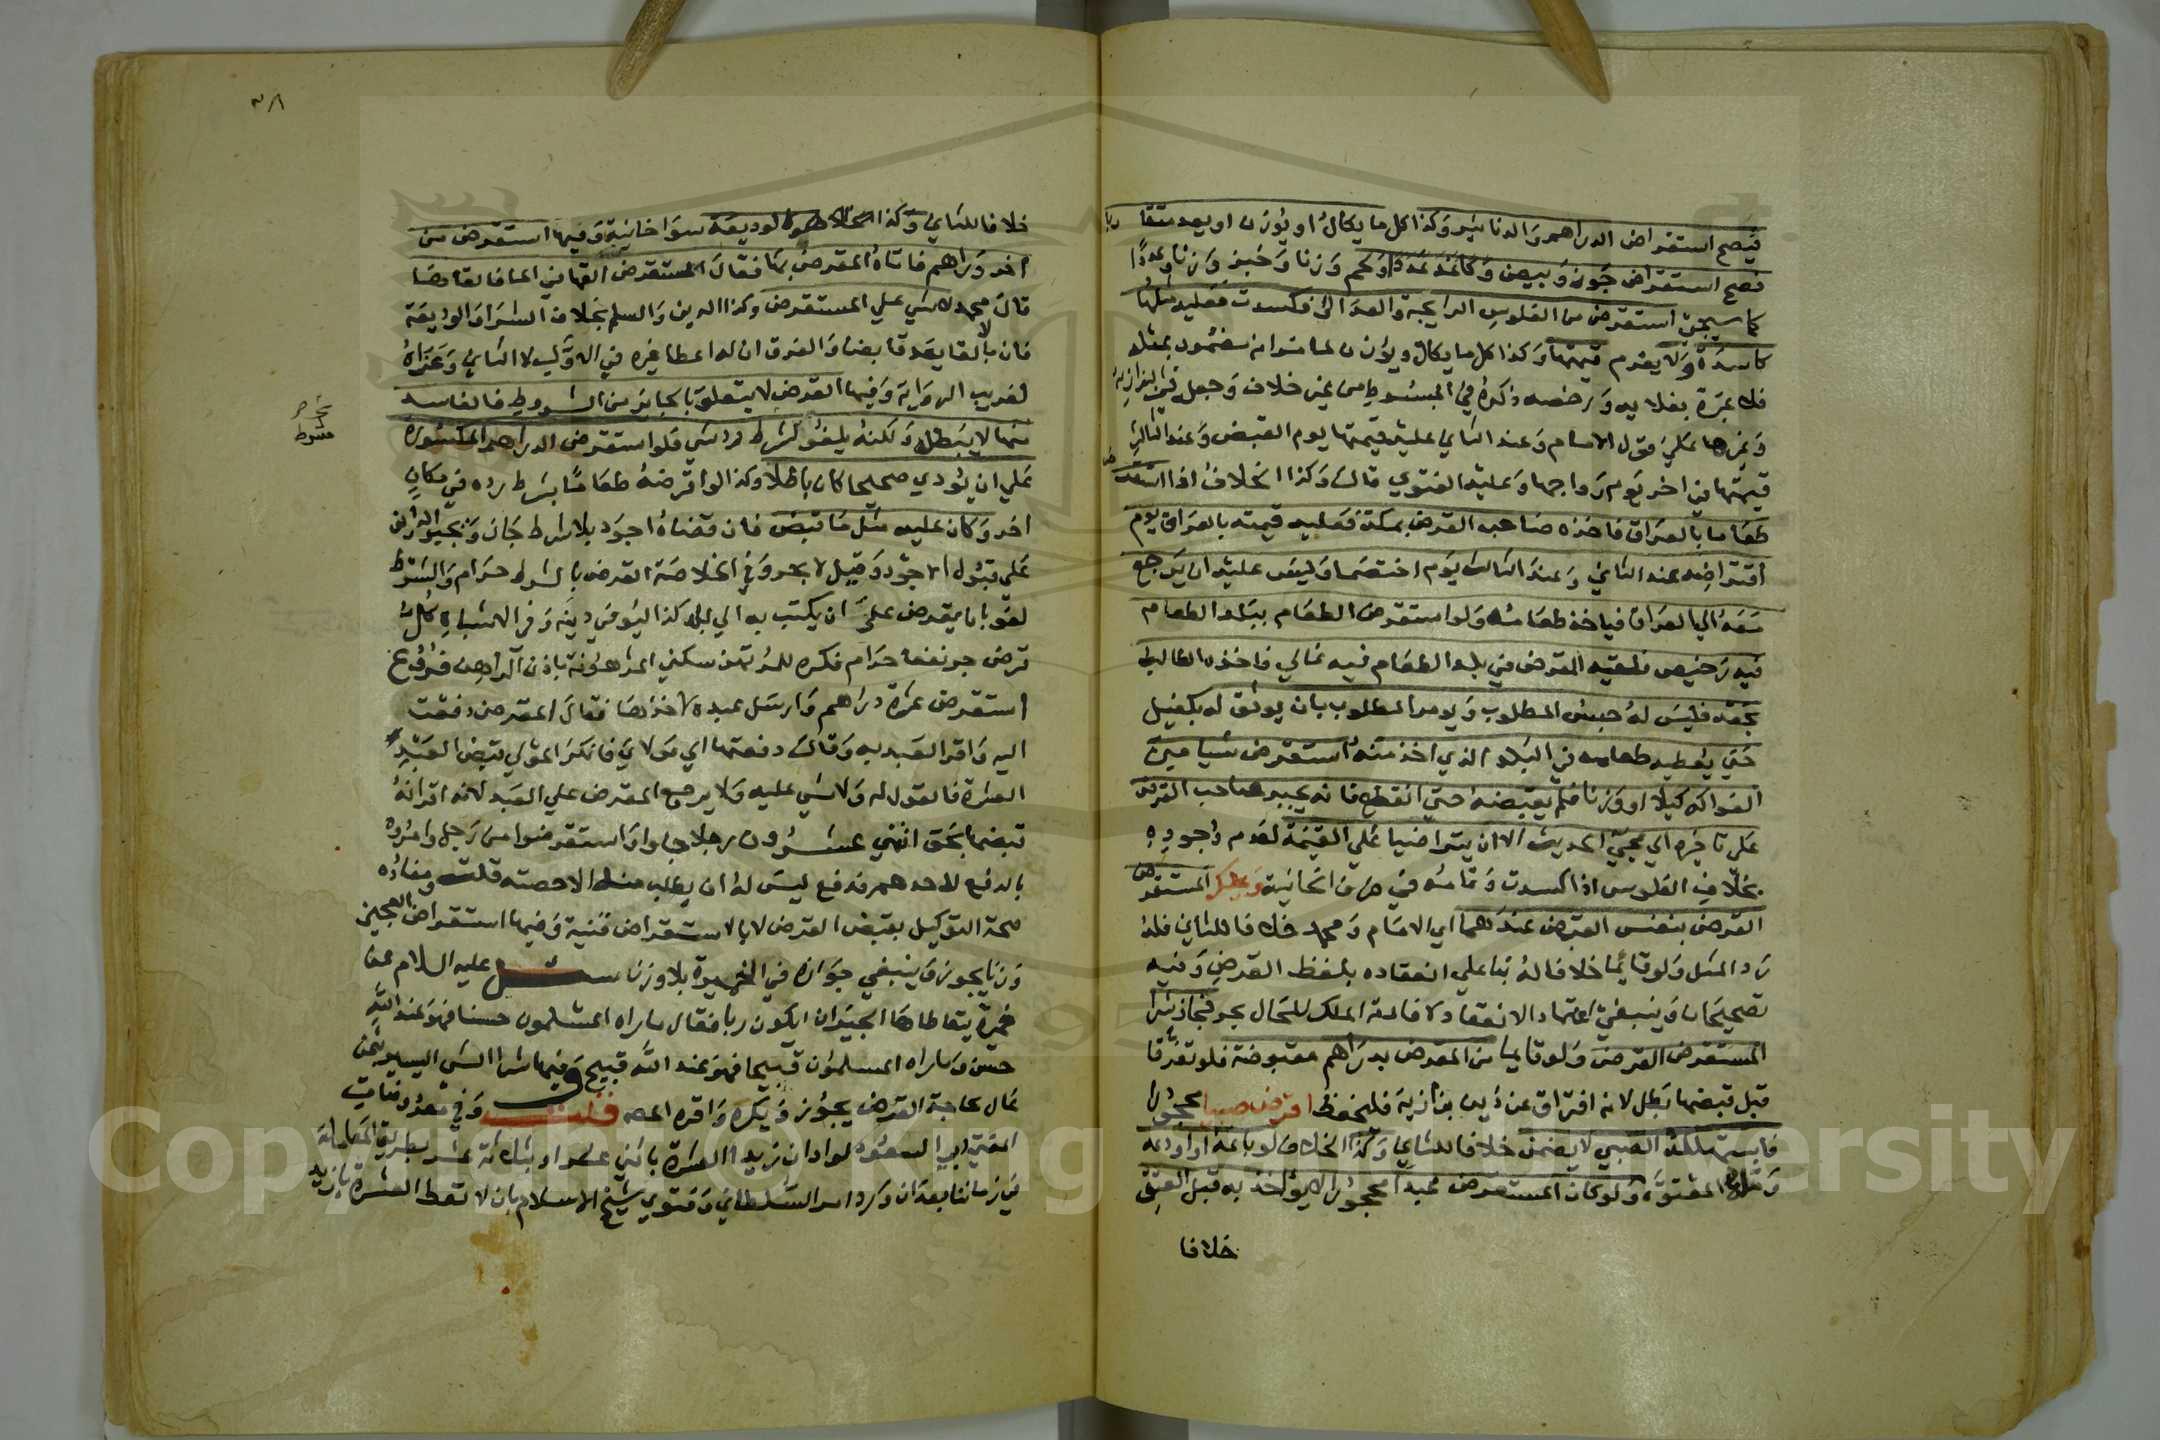 فيصح استقراض الدراهم والدنانير وكذا كل ما يكال او يوزن او يعد متقاربا
فصح استقراض جوز وبيض وكاغد عددا ولحم وزنا وخبز وزنا وعددا
كما سيجئ استقرض من الفلوس الرايجة والعدالى فكسدت فعليه مثلها
كاسدة ولا يغرم قيمتها وكذا كل ما يكال ويوزن لما مر انه مضمون بمثله
فلا عبرة بغلايه ورخصه ذكره في المبسوط من غير خلاف وجعله في البزازية
وغيرها على قول الامام وعند الثاني عليه قيمتها يوم القبض وعند الثالث
قيمتها في اخر يوم رواجها وعليه الفتوى قال وكذا الخلاف اذا استقرض
طعاما بالعراق فاخذه صاحب القرض بمكة فعليه قيمته بالعراق يوم
اقتراضه عند الثاني وعند الثالث يوم اختصما وليس عليه ان يرجع
معه الى العراق فياخذ طعامه ولو استقرض الطعام ببلد الطعام
فيه رخيص فلقيه المقرض في بلد الطعام فيه غالي فاخذه الطالب
بحقه فليس له حبس المطلوب ويومر المطلوب بان يوثق له بكفيل
حتى يعطيه طعامه في البلد الذي اخذ منه استقرض شيا من
الفواكه كيلا او وزنا فلم يقبضه حتى انقطع فانه يجبر صاحب القرض
على تاخيره الى مجئ الحديث الا ان يتراضيا على القيمة لعدم وجوده
بخلاف الفلوس اذا كسدت وتمامه في صرف الخانية ويملك المستقرض
القرض بنفس القبض عندهما اي الامام ومحمد خلافا للثاني فله
رد المثل ولو قائما خلافا له بنا على انعقاده بلفظ القرض وفيه
تصحيحان وينبغي اعتماد الانعقاد لافادته الملك للحال بحر فجاز شرا
المستقرض القرض ولو قايما من المقرض بدراهم مقبوضة فلو تفرقا
قبل قبضها بطل لانه افتراق عن دين بزازية فليحفظ اقرض صبيا محجورا
فاستهلكه الصبي لا يضمن خلافا للثاني وكذا الخلاف لو باعه او اودعه
ومثله المعتوه ولو كان المستقرض عبدا محجورا لا يؤاخذ به قبل العتق
خلافا
٣٨
خلافا للثاني وكذا الخلاف لوديعة سوا خانية وفيها استقرض من
اخر دراهم فاتاه المقرض بها فقال المستقرض القها في الما فالقاها
قال محمد لا شي على المستقرض وكذا الدين والسلم بخلاف الشرا والوديعة
فان بالقا يعد قابضا والفرق ان له اعطا غيره في الاول لا الثاني وعزاه
لغريب الرواية وفيها القرض لا يتعلق بالجايز من الشروط فالفاسد
منها لا يبطله ولكنه يلغو كشرط رد شي فلو استقرض الدراهم المكسورة
على ان يؤدي صحيحا كان باطلا وكذا لو اقرضه طعاما بشرط رده في مكان
اخر وكان عليه مثل ما قبض فان قضاه اجود بلا شرط جاز ويجبر الداين
على قبول الاجود وقيل لا بحر وفي الخلاصة القرض بالشرط حرام والشرط
لغو بان يقرض على ان يكتب به الى بلد كذا ليوفي دينه وفي الاشباه كل
قرض جر نفعا حرام فكره للمرتهن سكنى المرهونة باذن الراهن فروع
استقرض عشرة دراهم وارسل عبده لاخذها فقال المقرض دفعت
اليه واقر العبد به وقال دفعتها الى مولاي فانكر المولى قبض العبد
العشرة فالقول له ولا شي عليه ولا يرجع المقرض على العبد لانه اقر انه
قبضها بحق انتهى عشرون رجلا جاوا واستقرضوا من رجل وامروه
بالدفع لاحدهم فدفع ليس له ان يطلب منه الا حصته قلت ومفاده
صحة التوكيل بقبض القرض لا بالاستقراض قنية وفيها استقراض العجين
وزنا يجوز وينبغي جوازه في الخميرة بلا وزن سئل عليه السلام عن
خميرة يتعاطاها الجيران ايكون ربا فقال ما راه المسلمون حسنا فهو عند الله
حسن وما راه المسلمون قبيحا فهو عند الله قبيح وفيها شرا الشي اليسير بثمن
غال لحاجة القرض يجوز ويكره واقره المص قلت وفي معروضات
المفتي ابي السعود لو ادان زيد العشرة باثني عشر او بثلاثة عشر بطريق المعاملة
في زماننا بعد ان ورد امر السلطاني وفتوى شيخ الاسلام بان لا تعط العشرة بازيد